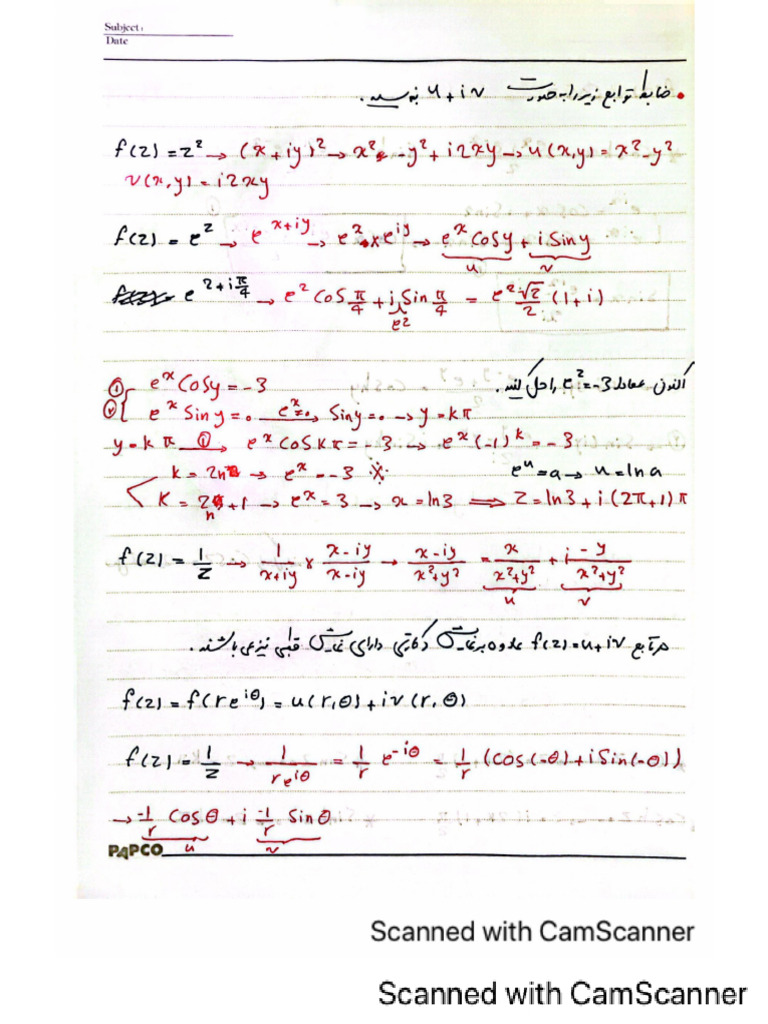 Subject:
Date
• ضابطه توابع زیر را به صورت u+iv بنویسید.
f(z)=z² → (x+iy)² → x² -y²+i2xy → u(x,y)=x²-y²
v(x,y)=i2xy
f(z)=e^z → e^{x+iy} → e^x × e^{iy} → e^x Cosy + i Siny
u v
e^{2+iπ/4} → e² Cos π/4 + i Sin π/4 = e² √2/2 (1+i)
e²
اکنون معادله e^z=-3 را حل کنید.
① e^x Cosy = -3
② e^x Siny = 0 e^x≠0 Siny=0 → y=kπ
y=kπ ① → e^x Coskπ = -3 → e^x(-1)^k = -3
k=2n → e^x=-3 ※ e^u=a → u=lna
k=2n+1 → e^x=3 → x=ln3 ⟹ z=ln3+i(2π+1)π
f(z)=1/z → 1/(x+iy) × (x-iy)/(x-iy) → (x-iy)/(x²+y²) = x/(x²+y²) + i -y/(x²+y²)
u v
هر تابع f(z)=u+iv علاوه بر نمایش دکارتی دارای نمایش قطبی نیز می باشند.
f(z)=f(re^{iθ})=u(r,θ)+iv(r,θ)
f(z)=1/z → 1/re^{iθ} = 1/r e^{-iθ} = 1/r (Cos(-θ)+iSin(-θ))
→ -1/r Cosθ + i -1/r Sinθ
u v
PAPCO
Scanned with CamScanner
Scanned with CamScanner